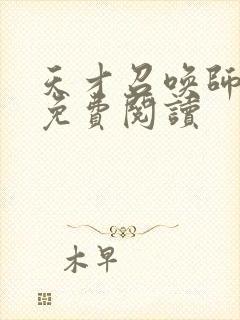 天才召喚師
免費閱讀
木早